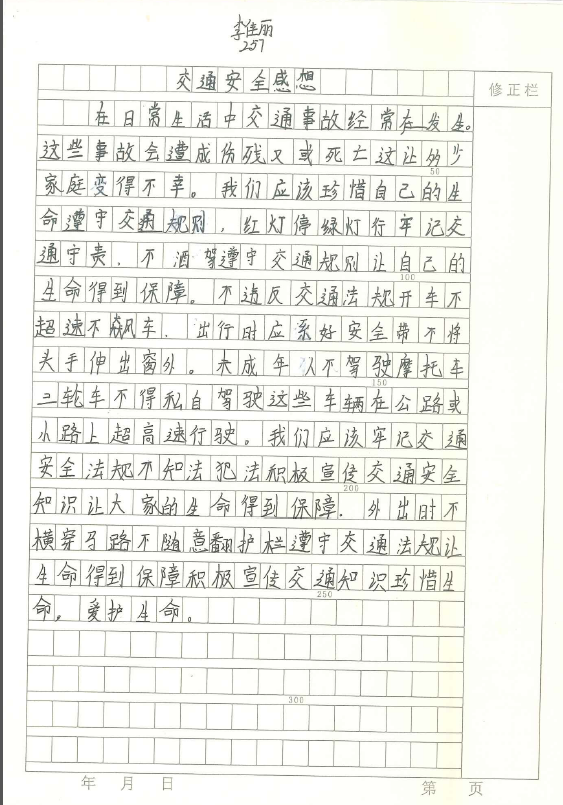 李佳丽
257
交通安全感想
修正栏
在日常生活中交通事故经常在发生。
这些事故会遭成伤残又或死亡这让多少
50
家庭变得不幸。我们应该珍惜自己的生
命遵守交通规则，红灯停绿灯行牢记交
通守责．不酒驾遵守交通规则让自己的
100
生命得到保障。不违反交通法规开车不
超速不飙车．出行时应系好安全带不将
头手伸出窗外。未成年人不驾驶摩托车
150
三轮车不得私自驾驶这些车辆在公路或
小路上超高速行驶。我们应该牢记交通
安全法规不知法犯法积极宣传交通安全
200
知识让大家的生命得到保障．外出时不
横穿马路不随意翻护栏遵守交通法规让
生命得到保障积极宣传交通知识珍惜生
250
命。爱护生命。
300
年 月 日
第 页